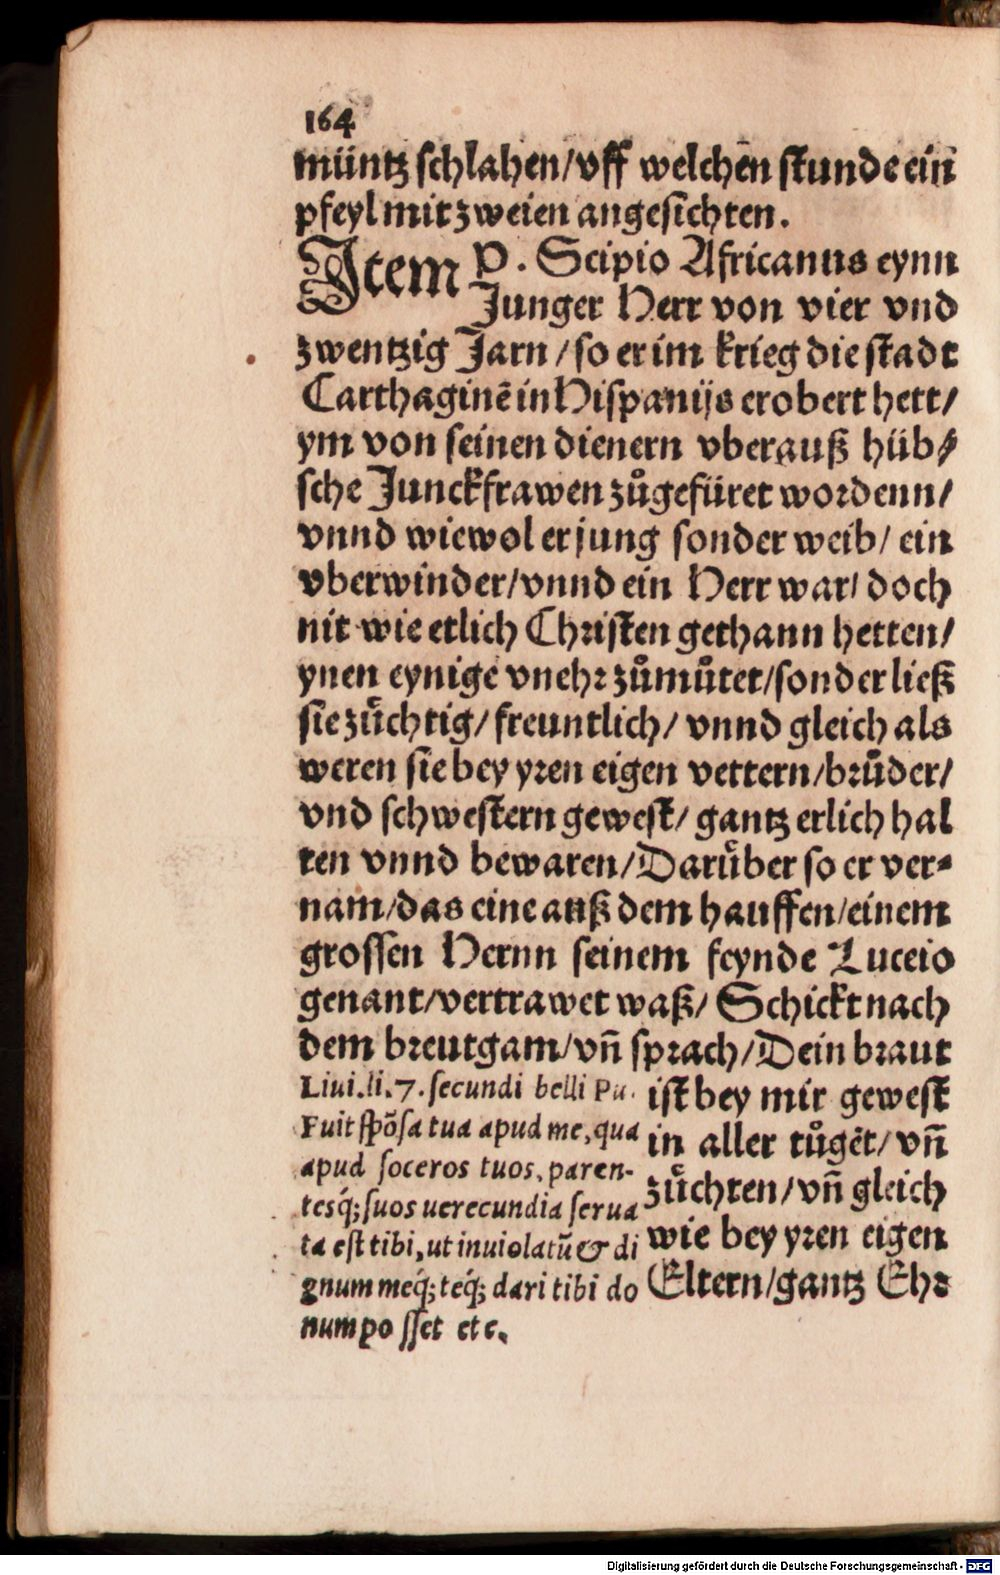 164
müntz schlahen/vff welchen stunde ein
pfeyl mit zweien angesichten.
Item P. Scipio Africanus eynn
Junger Herr von vier vnd
zwentzig Jarn/so er im krieg die stadt
Carthaginẽ in Hispanijs erobert hett/
ym von seinen dienern vberauß hüb⸗
sche Junckfrawen zůgefüret wordenn/
vnnd wiewol er jung sonder weib/ ein
vberwinder/vnnd ein Herr war/ doch
nit wie etlich Christen gethann hetten/
ynen eynige vnehr zůmůtet/sonder ließ
sie zuͤchtig/ freuntlich/ vnnd gleich als
weren sie bey yren eigen vettern/bruͤder/
vnd schwestern gewest/ gantz erlich hal
ten vnnd bewaren/Daruͤber so er ver⸗
nam/das eine auß dem hauffen/einem
grossen Hernn seinem feynde Luceio
genant/vertrawet waß/ Schickt nach
dem breutgam/vñ sprach/Dein braut
ist bey mir gewest
in aller tůgẽt/ vñ
zuͤchten/vñ gleich
wie bey yren eigen
Eltern/gantz Ehr
Liui.li.7.secundi belli Pu.
Fuit spõsa tua apud me, qua
apud soceros tuos, paren-
tesq́; suos uerecundia serua
ta est tibi, ut inuiolatũ & di
gnum meq́; teq́; dari tibi do
num posset etc.
Digitalisierung gefördert durch die Deutsche Forschungsgemeinschaft - DFG